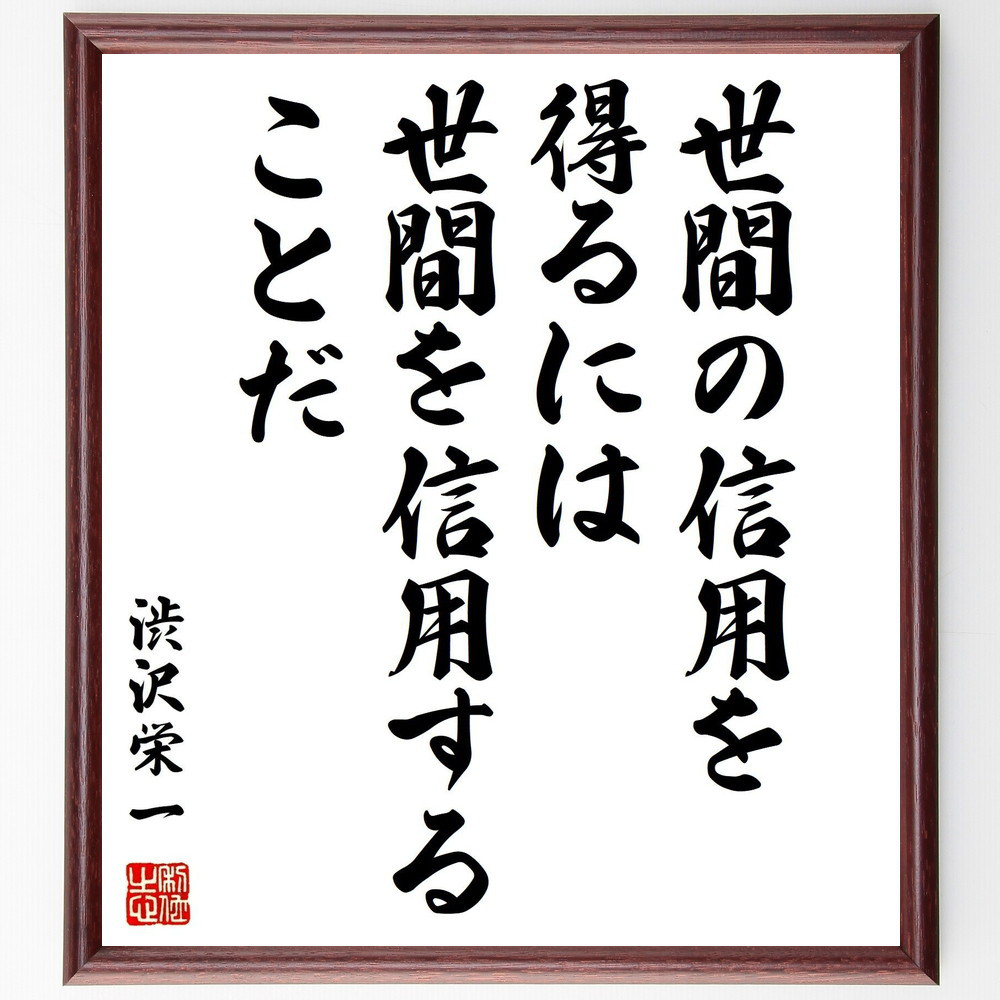 世間の信用を
得るには
世間を信用する
ことだ
渋沢栄一